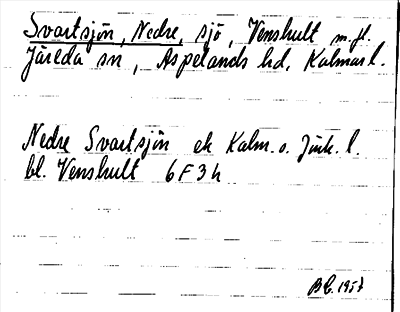 Svartsjön, Nedre, sjö, Venshult m.fl.
Järeda sn, Aspelands hd, Kalmar l.
Nedre Svartsjön ek Kalm. o. Jönk. l.
bl. Venshult 6F3h
1957